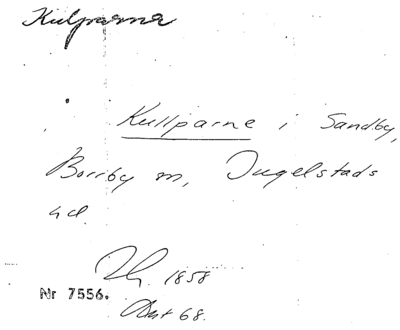 Kulparna
Kullparne i Sandby,
Borrby sn, Ingelstads
hd.
1858
Nr 7556.
Akt 68.